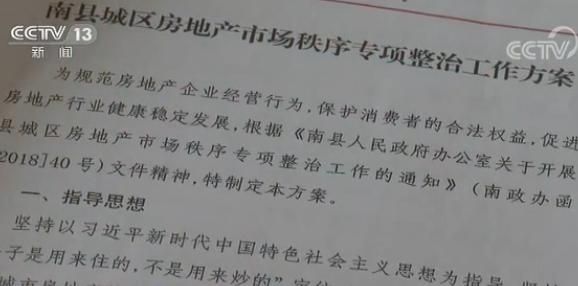 CCTV 13
新闻
CCTV
南县城区房地产市场秩序专项整治工作方案
为规范房地产企业经营行为，保护消费者的合法权益，促进
房地产行业健康稳定发展，根据《南县人民政府办公室关于开展
县城区房地产市场秩序专项整治工作的通知》（南政办函
2018]40 号)文件精神，特制定本方案。
一、指导思想
坚持以习近平新时代中国特色社会主义思想为指导，坚持
子是用来住的，不是用来炒的"定位